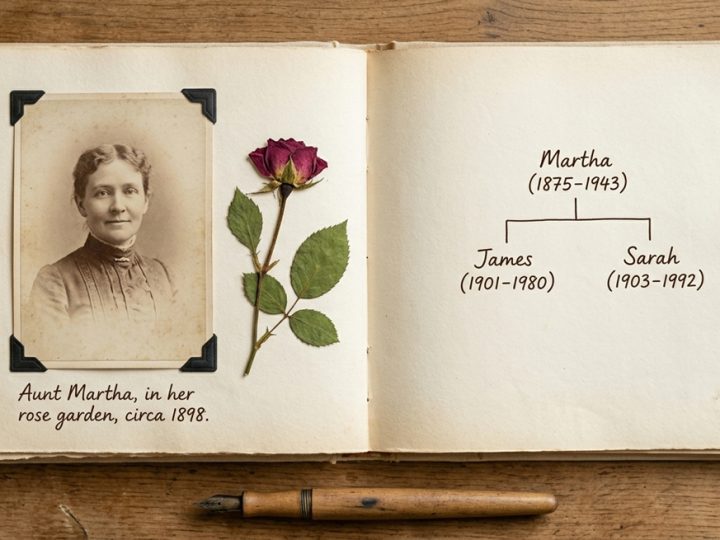 Aunt Martha, in her
rose garden, circa 1898.
Martha
(1875–1943)
James
(1901–1980)
Sarah
(1903–1992)